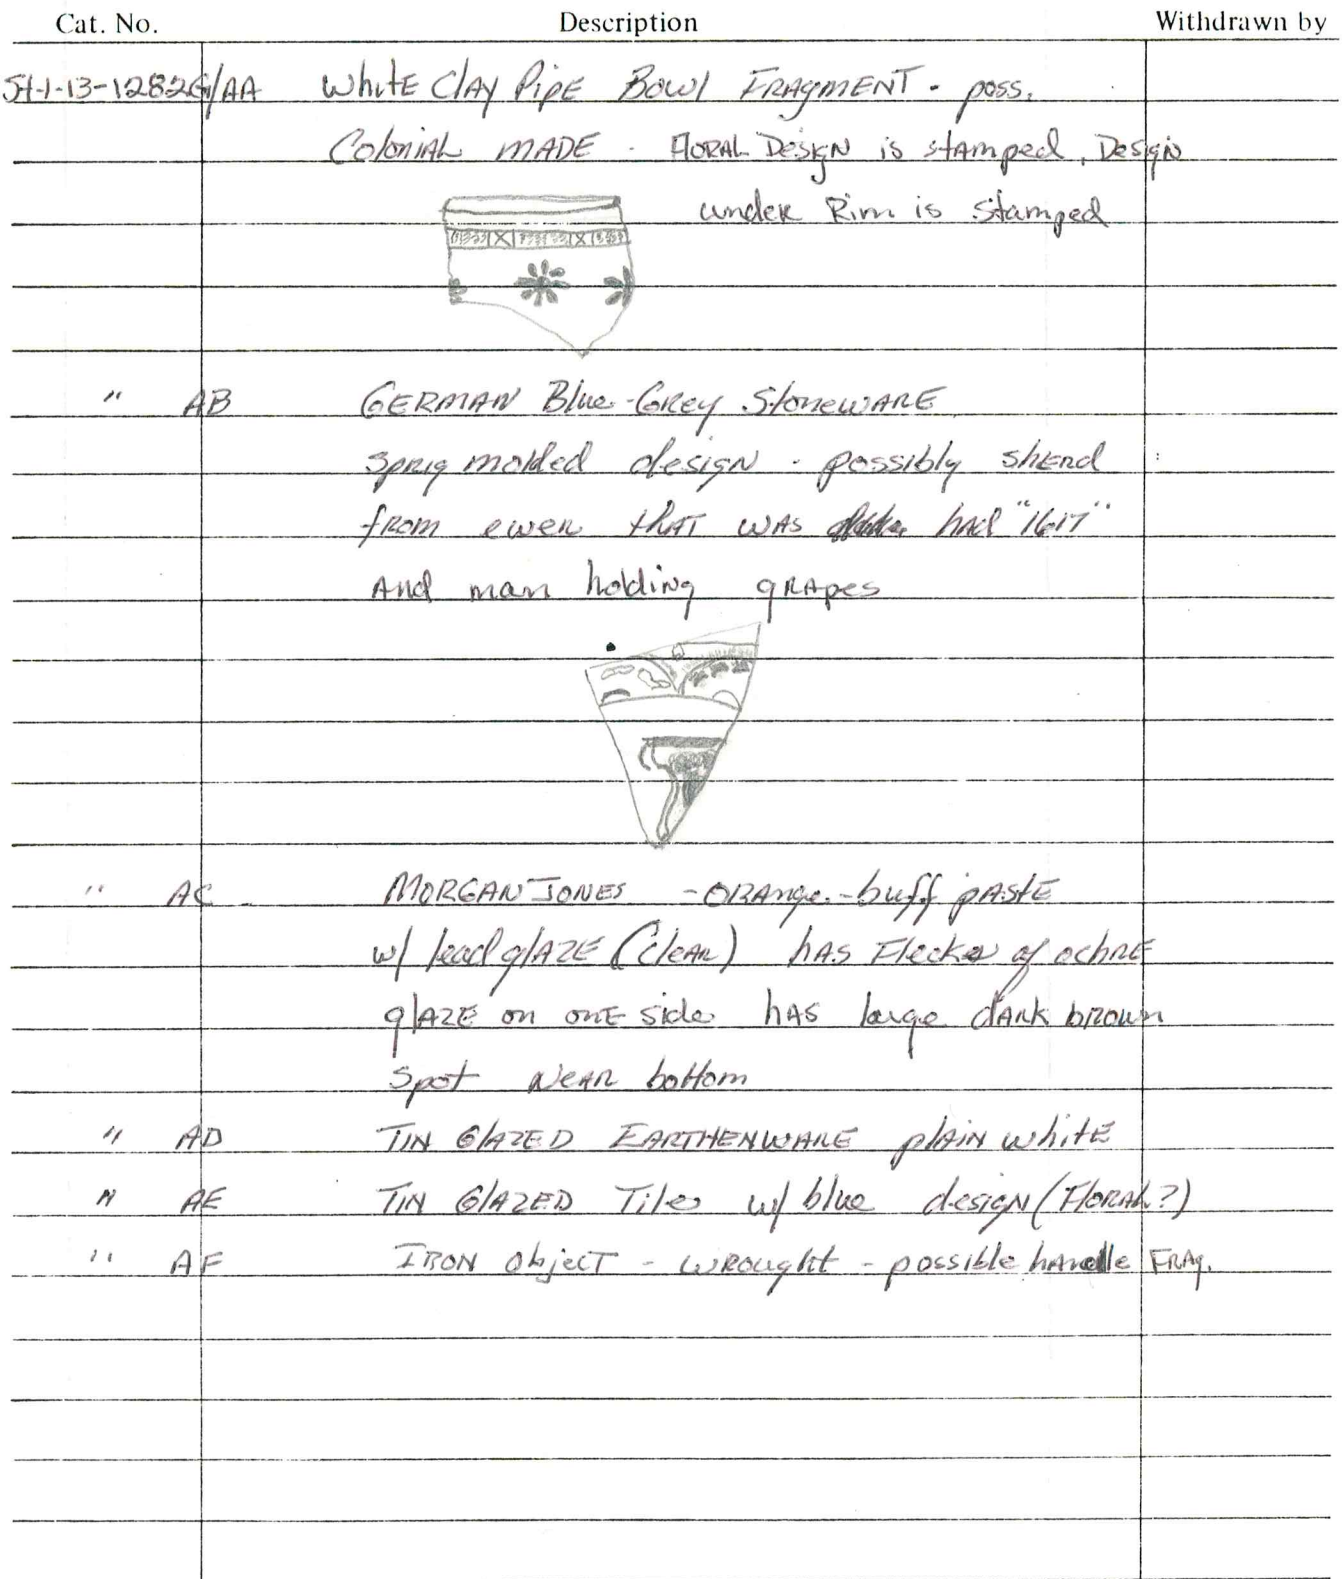 Cat. No. Description Withdrawn by
ST-1-13-1282G/AA White Clay Pipe Bowl Fragment - poss.
Colonial made - Floral Design is stamped, Design
under Rim is Stamped
" AB German Blue-Grey Stoneware
sprig molded design - possibly sherd
from ewer that was had "1617"
And man holding grapes
" AC Morgan Jones - orange-buff paste
w/ lead glaze (clear) has Flecks of ochre
glaze on one side has large dark brown
spot near bottom
" AD Tin Glazed Earthenware plain white
" AE Tin Glazed Tile w/ blue design (Floral?)
" AF Iron Object - wrought - possible handle Frag.